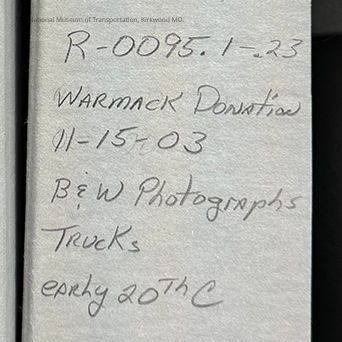 National Museum of Transportation, Kirkwood MO.
R-0095.1-.23
WARMACK DONATION
11-15-03
B & W Photographs
TRUCKS
EARLY 20Th C